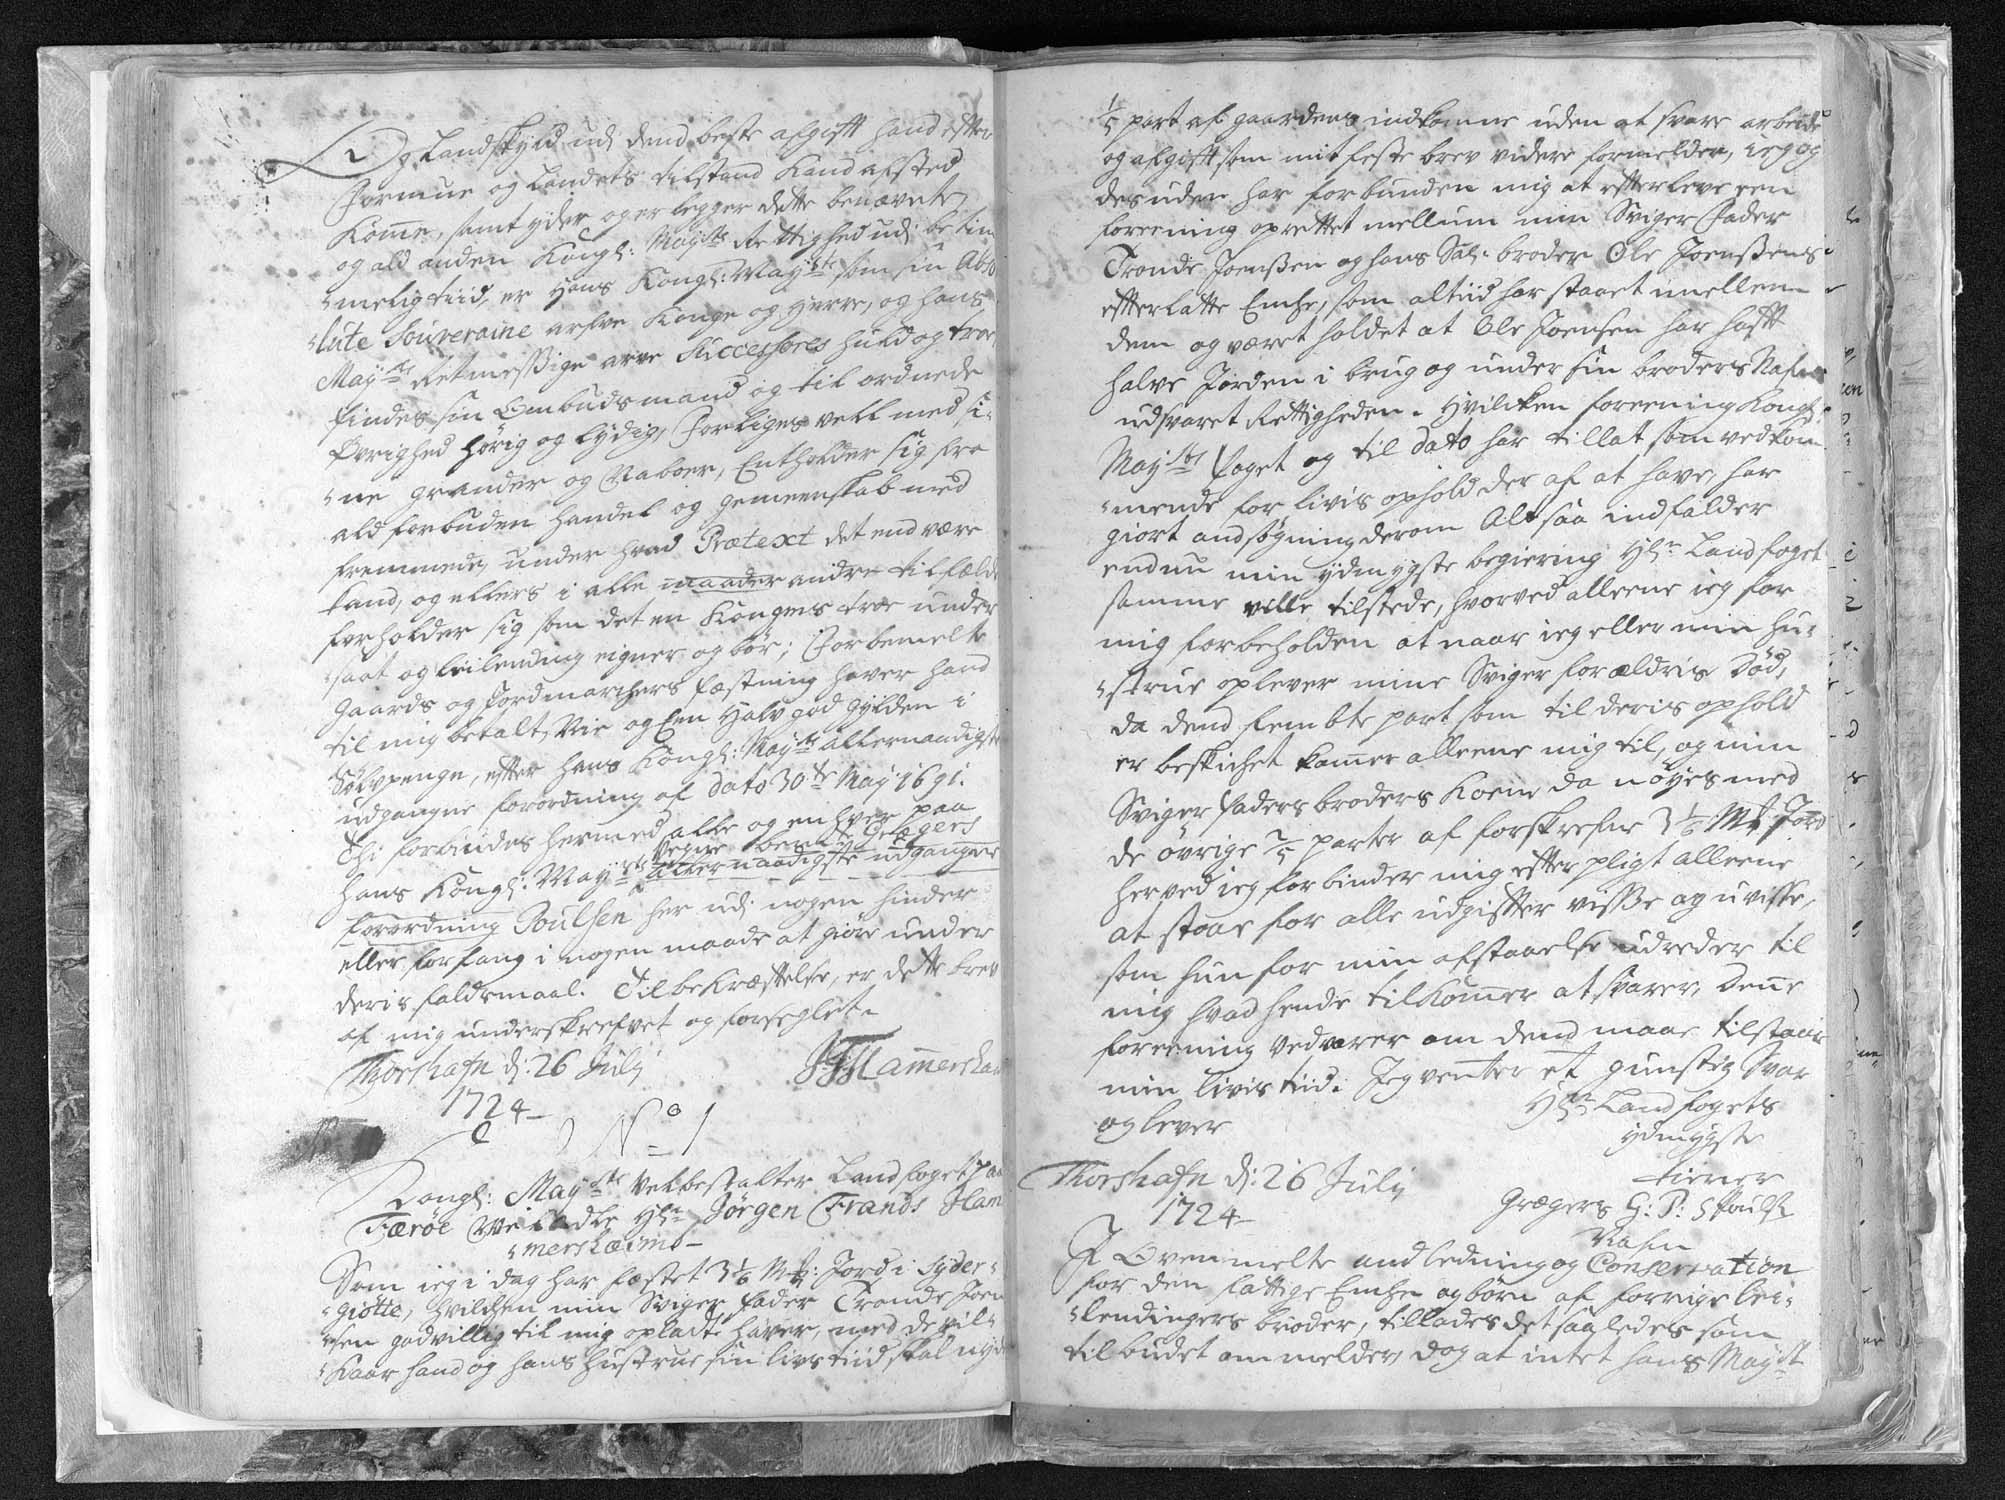 Og Landskyld udj dend beste afgifft hand effter
Formue og Landets tilstand Kand afsted
Komme, samt yder og er legger dette benævnte
og ald anden Kongl: Mayts Rettighed udj betim¬
¬melig tiid, er Hans Kongl: Mayts som sin Abso
¬lute Souveraine arfve Konge og Herre, og hans
Mayts Retmessige arve Successores huld og troe,
findes sin Ombudsmand og til ordnede
Øvrighed hörig og lydig, Forliges vell med si¬
¬ne grander og Naboer, Entholder sig fra
ald forbuden handel og gemeenskab med
fremmede, under hvad Prætext det end være
kand, og ellers i alle maader andre tilfælde
forholder sig som det en Kongens troe under
¬saat og leilending eigner og bör; For bemelte
gaards og Jordmarchers fæstning haver hand
til mig betalt, Nie og Een Halv god gylden i
Sölvpenge, effter Hans Kongl: Mayts allernaadigste
udgangne forordning af dato 30te May 1691.
Thi forbindes hermed alle og enhver paa
Hans Kongl: Mayts vegne ber.te Grægers
allernaadigste udgangne
forordning Poulsen her udj nogen hinder
eller forfang i nogen maade at giöre under
deris faldsmaal. Til bekræfftelse, er dette brev
af mig underskrefvet og forseglet.
Thorshafn d: 26 July
1724
JFHamershai
No 1
Kongl: Mayts Velbestalter Landfoget paa
Færöe Velædle Hr Jörgen Frands Ham
¬mershaimb
Som ieg i dag har fæstet 3 1/6 Mk: Jord i Syder¬
¬giötte, hvilchen min Sviger fader Tronde Joen
¬sen godvillig til mig opladt haver, med de vil¬
¬kaar hand og hans Hustrue sin livs tiid skal nyde
1/5 part af gaardens indkomme uden at svare arbeide
og afgifft som mit feste brev videre formelder, ieg og
desuden har forbunden mig at effterleve een
foreening oprettet mellum min Sviger Fader
Tronde Joenssen og hans Sal: broder Ole Joenssens
effterlatte Enche, som altiid har staaet imellem
dem og været holdet at Ole Joensen har hafft
halve Jorden i brug og under sin broders Nafn
udsvaret Rettigheden. Hvilcken foreening Kongl:
Mayts foget og til dato har tillat som vedkom
¬mende for livis ophold der af at have, har
giort andsøgning derom Alt saa indfalder
endnu min ydmygste begiering Hr Landfoget
samme ville tilstede, hvorved alleene ieg for
mig forbeholden at naar ieg eller min Hu¬
¬strue oplever mine Sviger forældris Död,
da dend fembte part som til deris ophold
er beskichet kommer alleene mig til, og min
Sviger faders broders Koene da nöyes med
de övrige 2/5 parter af forskrefne 3 1/6 Mk Jord
herved ieg forbinder mig effter pligt alleene
at staae for alle udgiffter visse og uvisse,
som hun for min afstaaelse udreder til
mig hvad hende tilkommer at svarer, Denne
foreening vedvarer om dend maae tilstaais
min livis tiid. Jeg venter et gunstig Svar
og lever
Hr Landfogets
ydmygste
tiener
Thorshafn d: 26 July
1724
Grægers G: P: S Poulsen
Nafn
I Ovenmelte andledning og Conservation
for den fattige Enche og börn af forrige lei¬
¬lendingers broder, tillades det saaledes som
tilbudet ommelder, dog at intet hans Mayts